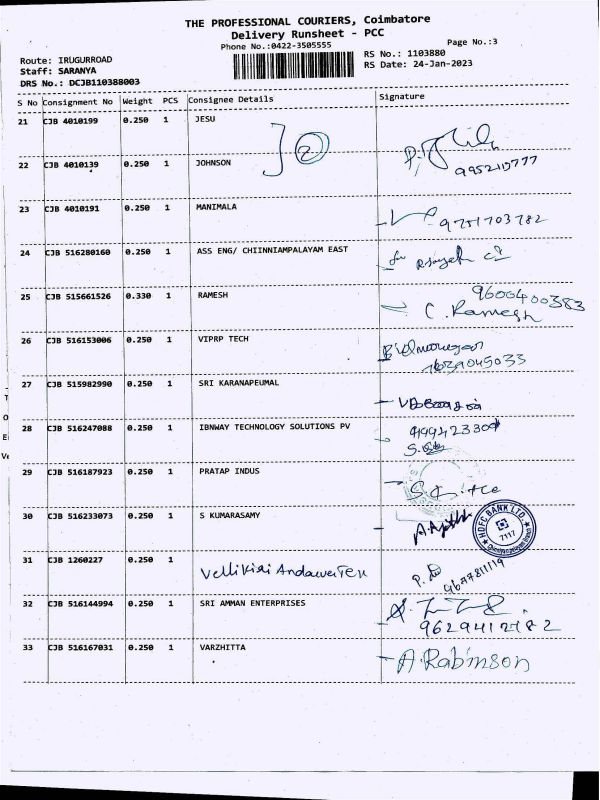 THE PROFESSIONAL COURIERS, Coimbatore
Delivery Runsheet - PCC
Phone No.:0422-3505555
Page No.:3
Route: IRUGURROAD
Staff: SARANYA
DRS No.: DCJB110388003
RS No.: 1103880
RS Date: 24-Jan-2023
S No Consignment No Weight PCS Consignee Details Signature
21 CJB 4010199 0.250 1 JESU
2
22 CJB 4010139 0.250 1 JOHNSON
23 CJB 4010191 0.250 1 MANIMALA 9751703782
24 CJB 516280160 0.250 1 ASS ENG/ CHIINNIAMPALAYAM EAST
25 CJB 515661526 0.330 1 RAMESH 9600400383
C. Ramesh
26 CJB 516153006 0.250 1 VIPRP TECH
27 CJB 515982990 0.250 1 SRI KARANAPEUMAL
28 CJB 516247088 0.250 1 IBNWAY TECHNOLOGY SOLUTIONS PV
29 CJB 516187923 0.250 1 PRATAP INDUS
30 CJB 516233073 0.250 1 S KUMARASAMY
HDFC BANK LTD
7117
31 CJB 1260227 0.250 1
32 CJB 516144994 0.250 1 SRI AMMAN ENTERPRISES
33 CJB 516167031 0.250 1 VARZHITTA A. Rabinson